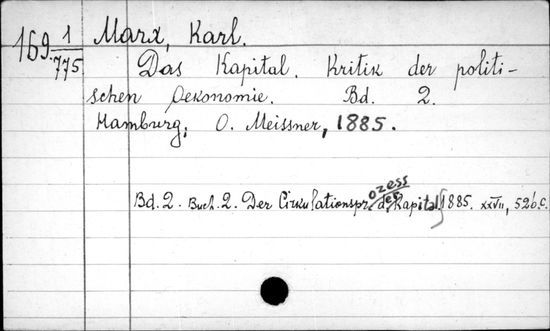 169 1/775
Marx, Karl.
Das Kapital. Kritik der politi-
schen Oekonomie. Bd. 2.
Hamburg, O. Meissner, 1885.
Bd. 2. Buch. 2. Der Cirkulationsprozess der Kapital 1885. XXVII, 526 c.